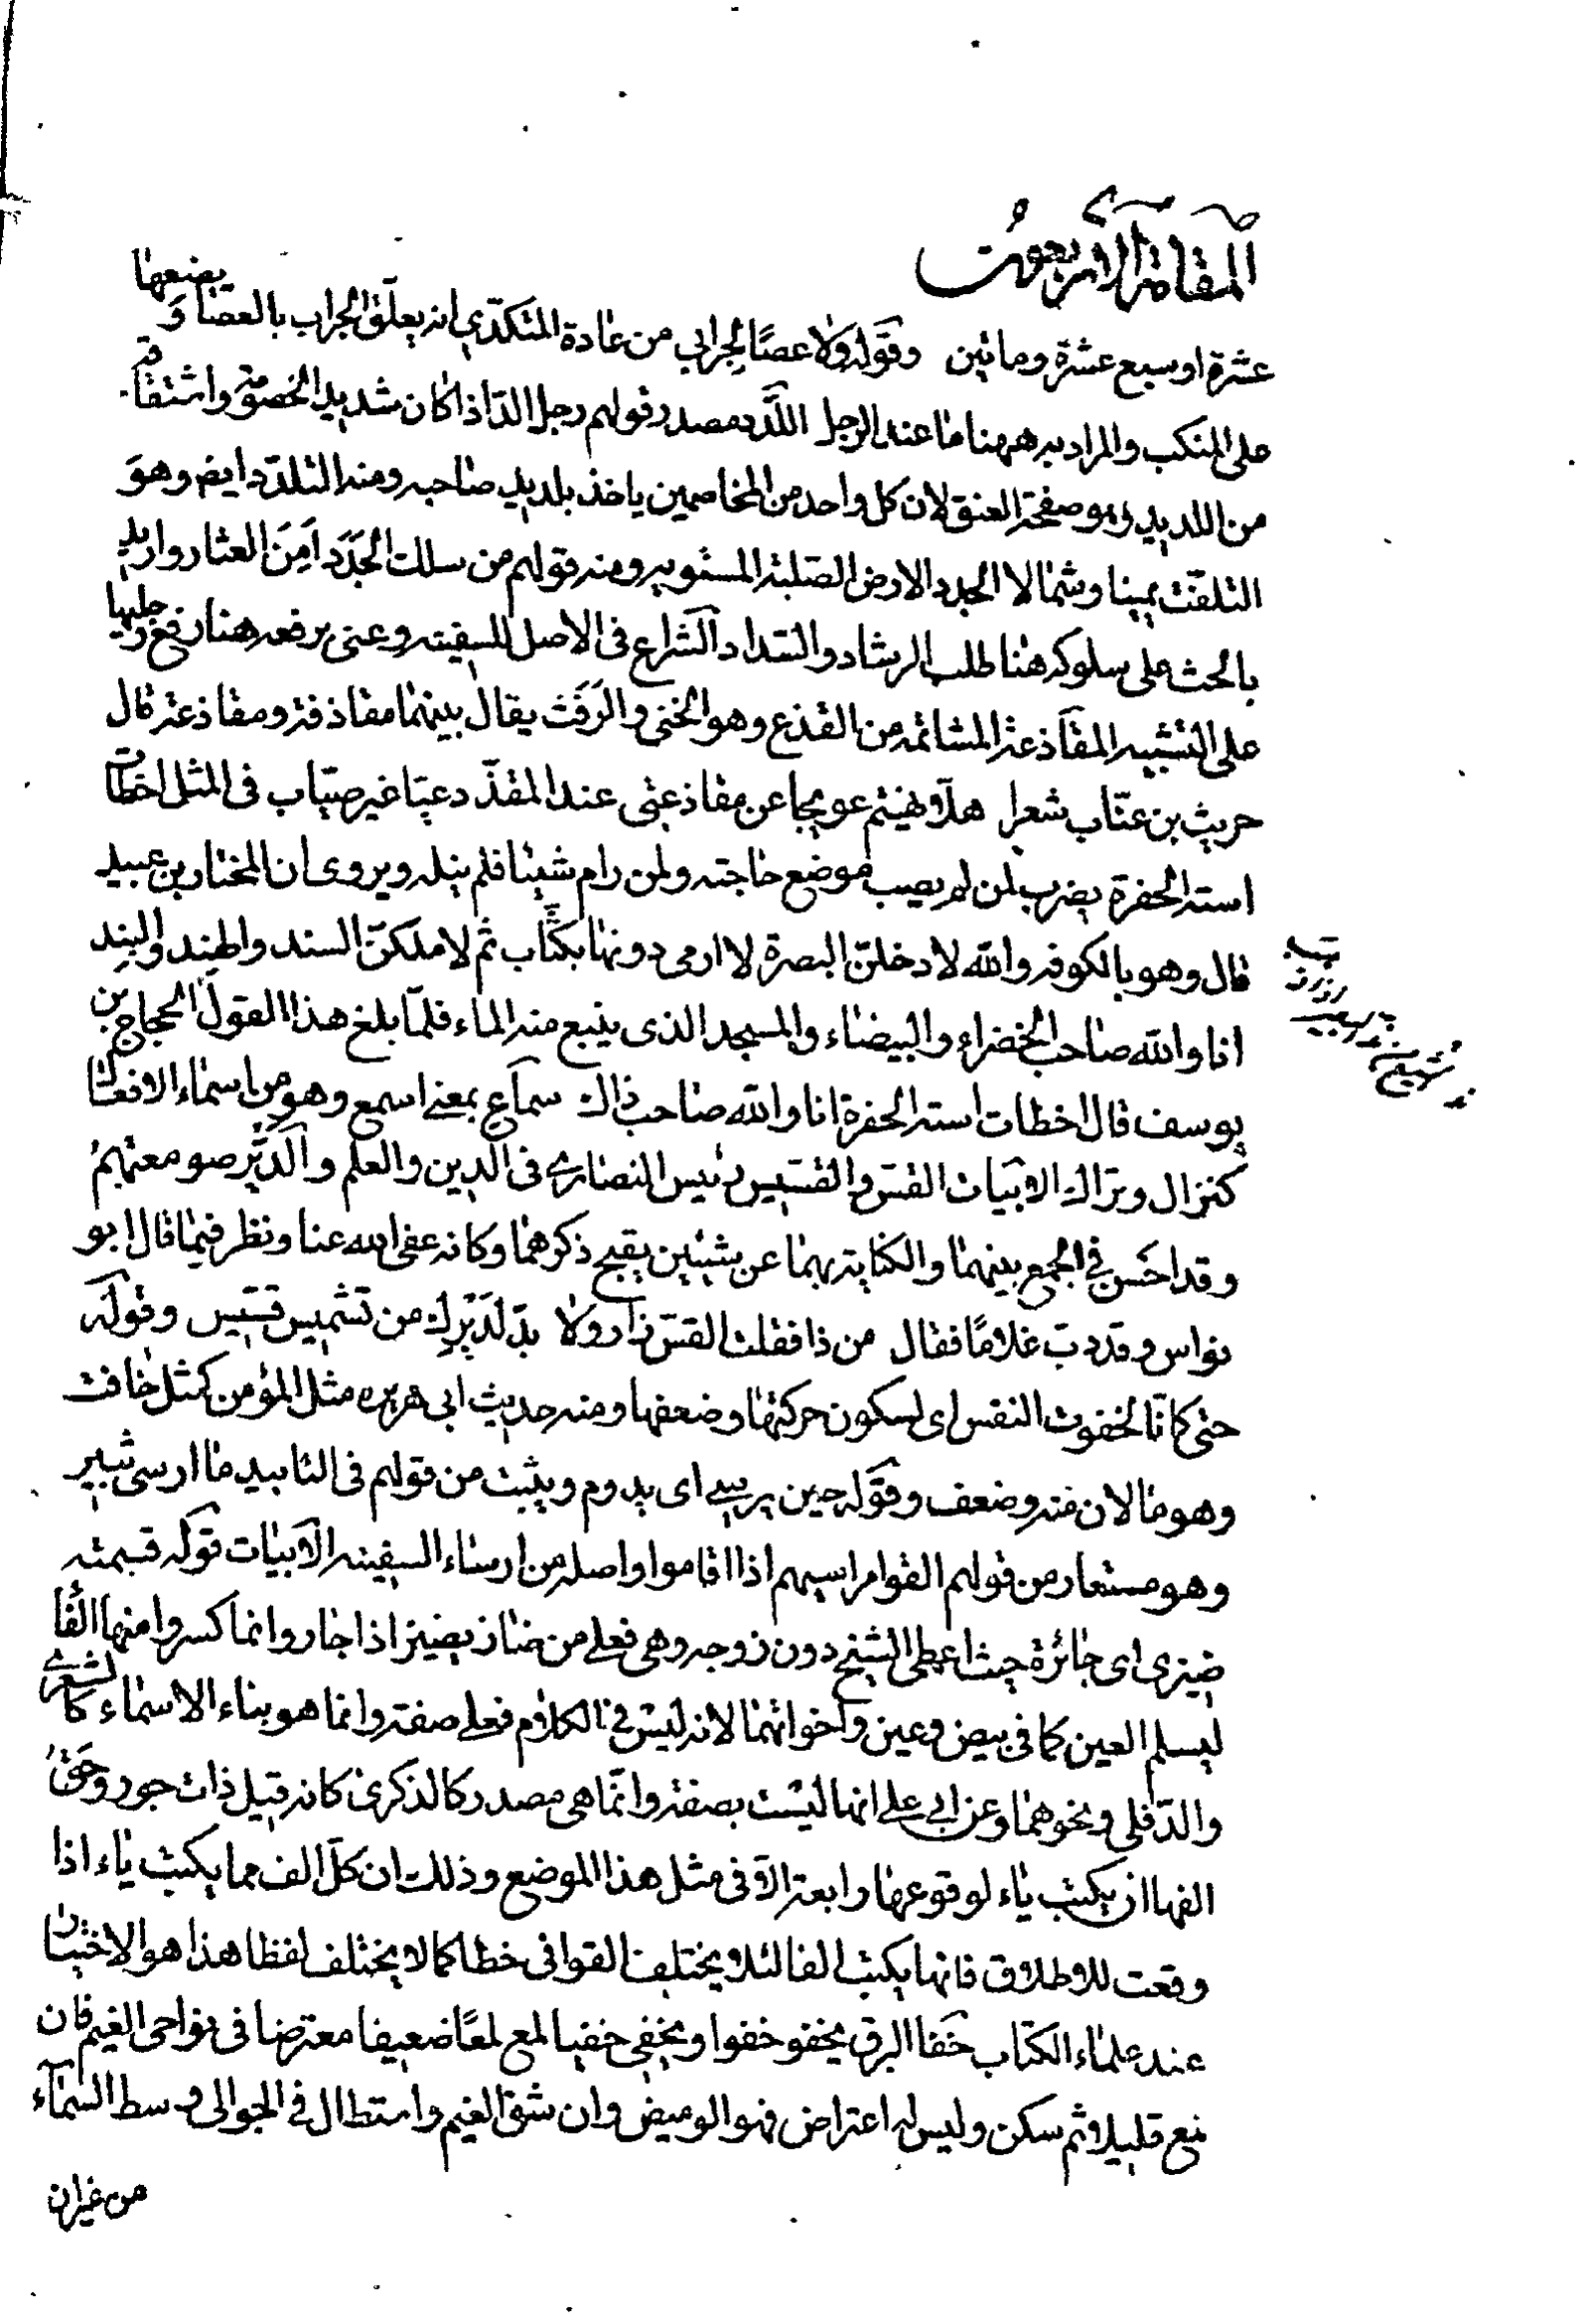 المقامة الاربعون
عشرة او سبع عشرة ومائتين وقوله ولا عصًا لجرابي من عادة المتكدّي انه يعلّق الجراب بالعصا ويضعها
على المنكب والمراد به ههنا ما عند الرجل اللَّدد مصدر قولهم رجل الدّ اذا كان شديد الخصومة واشتقاقه
من اللديد وهو صفحة العنق لان كل واحد من المخاصمين ياخذ بلديد صاحبه ومنه التلدّد ايضا وهو
التلفّت يمينا وشمالا الجدد الارض الصّلبة المستويه ومنه قولهم من سلك الجَدَد اَمِنَ العثار واريد
بالحث على سلوكه هنا طلب الرشاد والسّداد الشراع فى الاصل للسفينه وعنى برفعه هنا رفع رجليها
على التشبيه المقاذعة المشاتمه من القذع وهو الخنى والرَفَث يقال بينهما مقاذفة ومقاذعة قال
حريث بن عتّاب شعرا هلّا نهيتم عويجا عن مقاذعتى عند المقذّ دعيّا غير صيّاب فى المثل اخطات
استه الحفرة يضرب لمن لم يصب موضع حاجته ولمن رام شيئا فلم ينله ويروى ان المختار بن عبيد
قال وهو بالكوفه والله لادخلنّ البصرة لا ارمى دونها بكثّاب ثم لاملكنّ السند والهند والبند
انا والله صاحب الخضراء والبيضاء والمسجد الذى ينبع منه الماء فلمّا بلغ هذا القول الحجاج بن
يوسف قال اخطات استه الحفرة انا والله صاحب ذاك سماعِ بمعنى اسمع وهو من اسماء الافعال
كنزال وتراك الابيات القسّ والقسّيس رئيس النصارى فى الدين والعلم والدَّير صومعتهم
وقد احسن فى الجمع بينهما والكناية بهما عن شيئين يقبح ذكرهما وكانه عفى الله عنا ونظر فيما قال ابو
نواس وقد دبّ غلامًا فقال من ذا فقلت القسّ زار ولا بدّ لدَيْرِك من تشميس قسّيس وقوله
حتى كانّا لخفوت النفس اى لسكون حركتها وضعفها ومنه حديث ابى هريره مثل المؤمن كمثل خافت
وهو ما لان منه وضعف وقوله حين يرسى اى يدوم ويثبت من قولهم فى التابيد ما ارسى ثبير
وهو مستعار من قولهم القوا مراسيهم اذا اقاموا واصله من ارساء السفينه الابيات قوله قسمته
ضيزى اى جائرة حيث اعطى الشيخ دون زوجه وهى فعلى من ضاز يضيز اذا جار وانما كسروا منها الفاء
ليسلم العين كما فى بيض وعين واخواتهما لانه ليس فى الكلام فعلى صفة وانما هو بناء الاسماء كالشعرى
والدّفلى ونحوهما وعن ابى على انها ليست بصفة وانّما هى مصدر كالذكرى كانه قيل ذات جور وحقّ
الفها ان يكتب ياء لوقوعها رابعة الا فى مثل هذا الموضع وذلك ان كلّ الف مما يكتب ياء اذا
وقعت للاطلاق فانها يكتب الفا لئلا يختلف القوافى خطا كما لا يختلف لفظا هذا هو الاختيار
عند علماء الكتاب خفا البرق يخفو خفوا ويخفى خفيا لمع لمعًا ضعيفا معترضا فى نواحى الغيم فان
لمع قليلا ثم سكن وليس له اعتراض فهو الوميض وان شقّ الغيم واستطال فى الجوّ الى وسط السماء
من غير ان